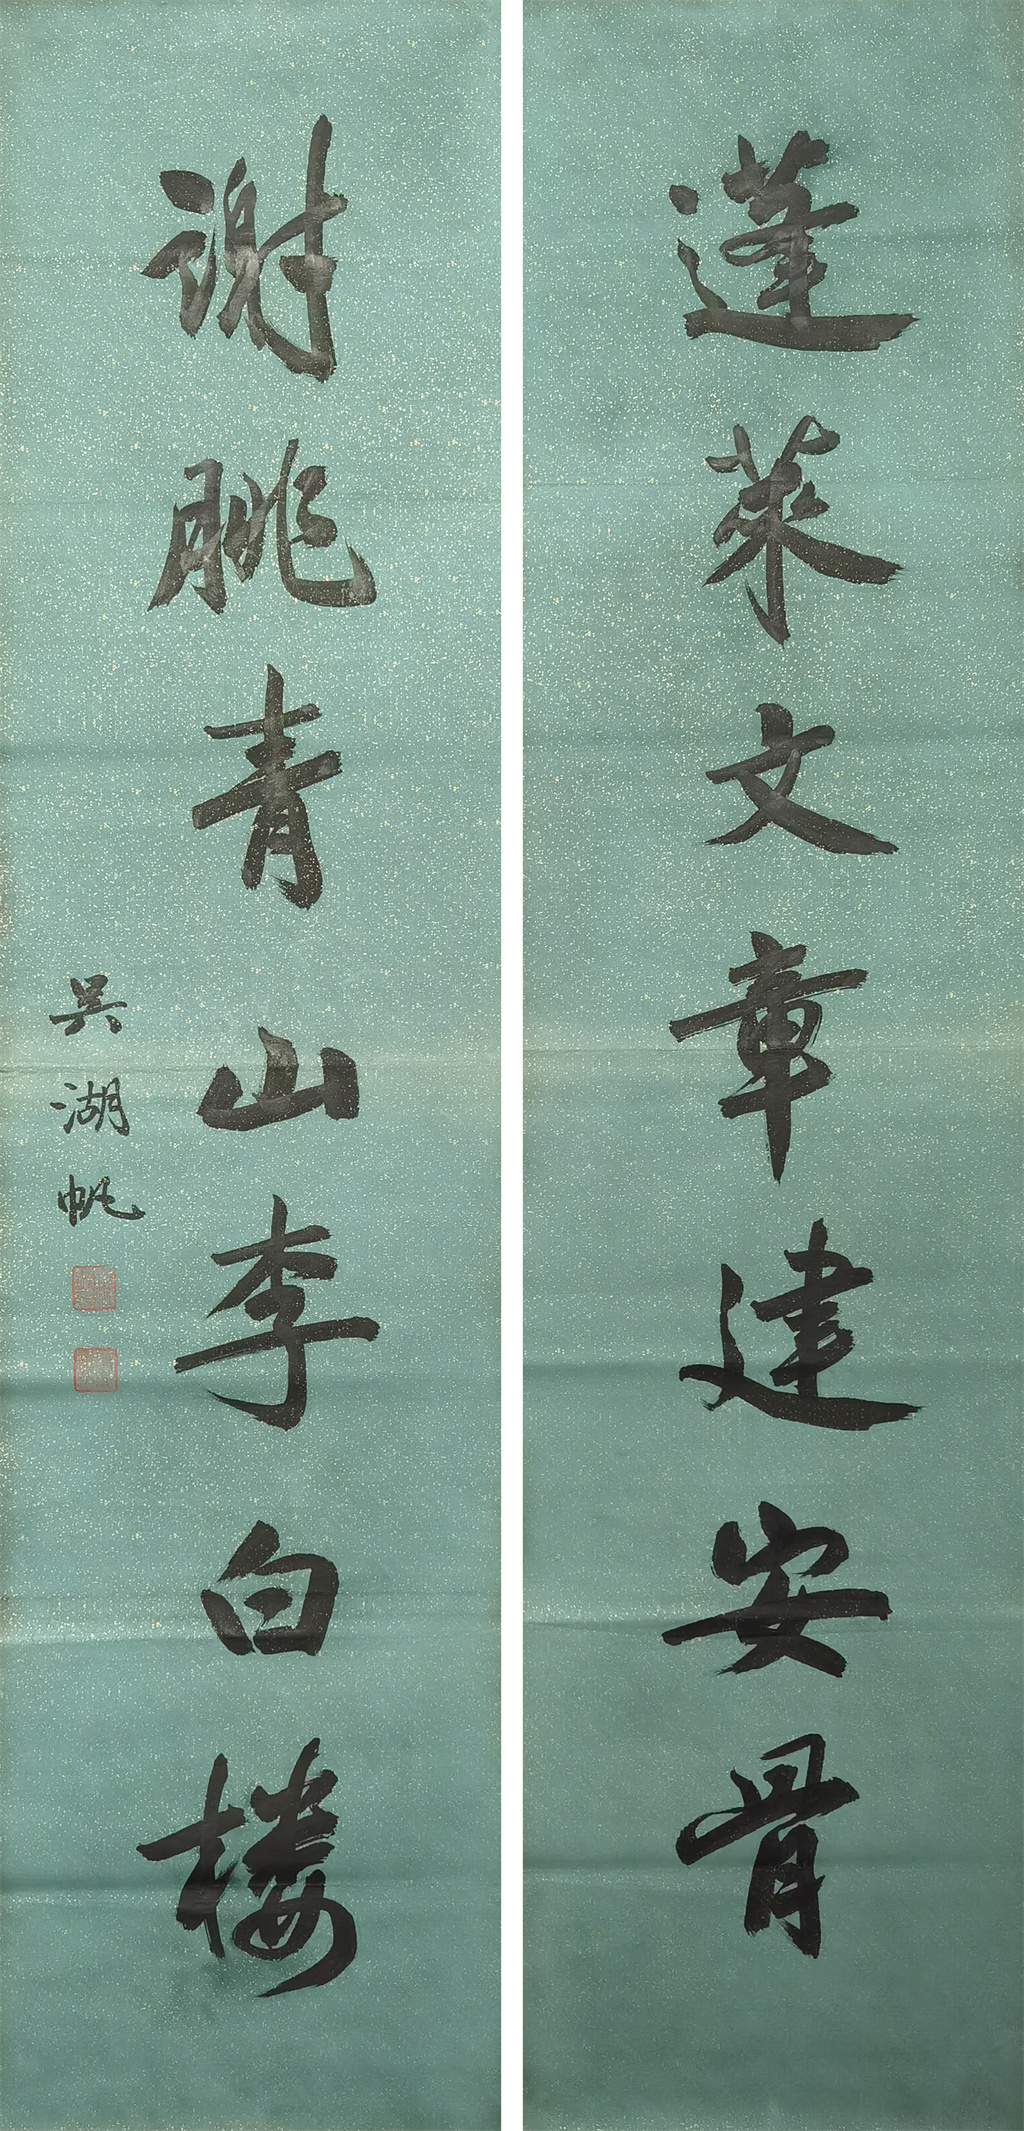 蓬萊文章建安骨
謝朓青山李白樓
吳湖帆